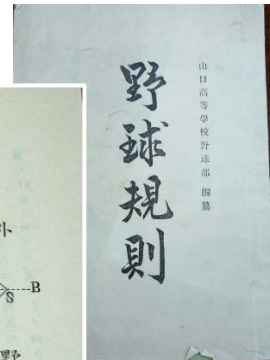 山口高等學校野球部 編纂
野球規則
外
S
B
野